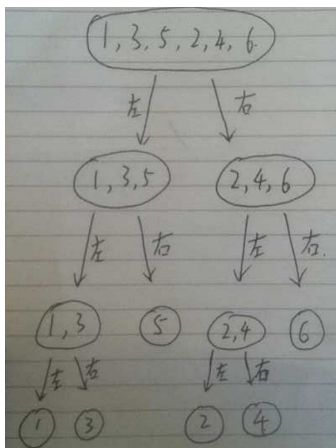 1, 3, 5, 2, 4, 6.
左 右
1, 3, 5 2, 4, 6
左 右 左 右.
1, 3 5 2, 4 6
左 右 左 右
1 3 2 4